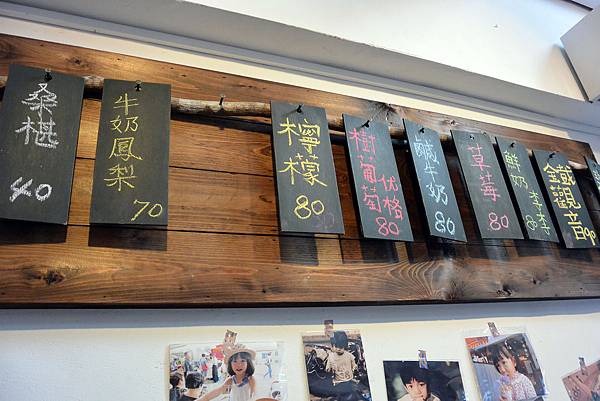 桑椹
40
牛奶鳳梨
70
檸檬
80
樹葡萄
优格
80
鹹牛奶
80
草莓
80
鮮奶
李李
80
鐵觀音
90